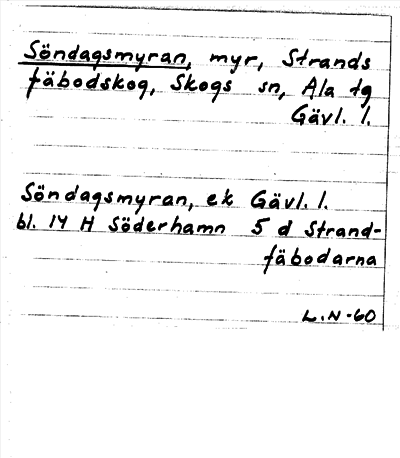 Söndagsmyran, myr, Strands
fäbodskog, Skogs sn, Ala tg
Gävl. l.
Söndagsmyran, ek Gävl. l.
bl. 14 H Söderhamn 5 d Strand-
fäbodarna
L.N-60